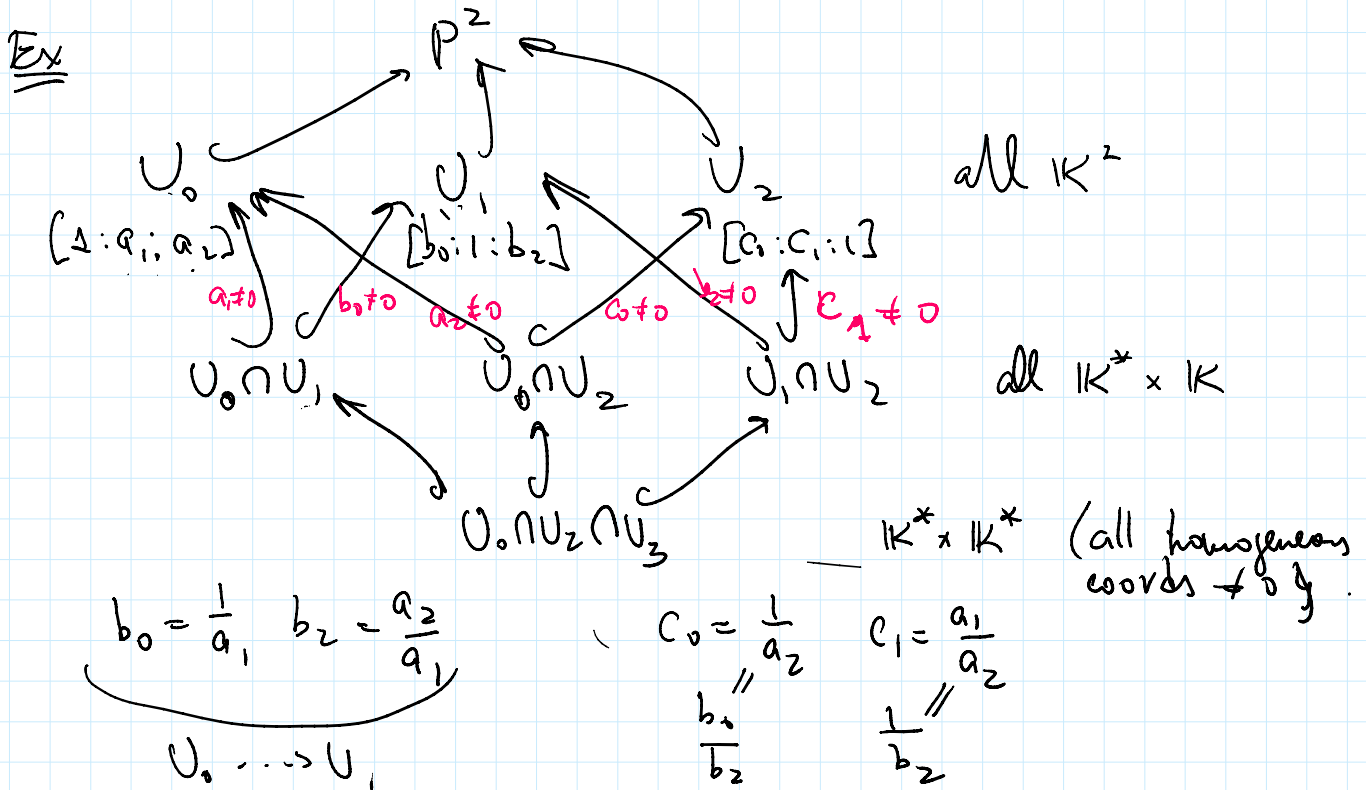 Ex
P²
U₀ U₁ U₂ all 𝕂²
[1 : a₁ : a₂] [b₀ : 1 : b₂] [c₀ : c₁ : 1]
a₁≠0 b₀≠0 a₂≠0 c₀≠0 b₂≠0 c₁≠0
U₀∩U₁ U₀∩U₂ U₁∩U₂ all 𝕂* × 𝕂
U₀∩U₂∩U₃ 𝕂* × 𝕂* (all homogeneous
coords ≠ 0).
b₀ = 1/a₁ b₂ = a₂/a₁ c₀ = 1/a₂ c₁ = a₁/a₂
// //
b₀/b₂ 1/b₂
U₀ ⇢ U₁